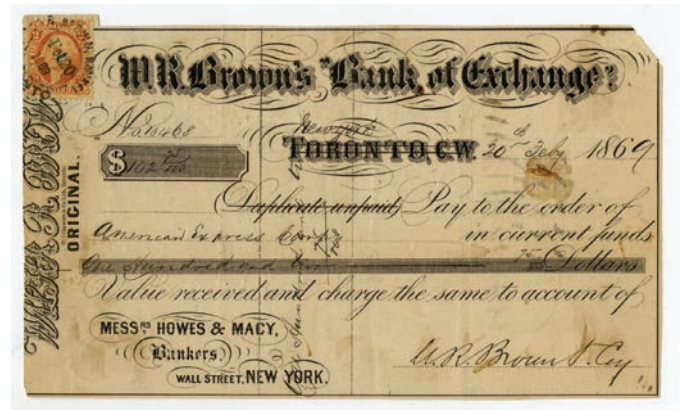 W.R. Brown's "Bank of Exchange"
New York
TORONTO C.W. 20th Feby 1869
$102
ORIGINAL.
(Duplicate unpaid) Pay to the order of
American Express Compy in current funds
One Hundred and two Dollars
Value received and charge the same to account of
MESSRS HOWES & MACY,
Bankers,
WALL STREET, NEW YORK.
W.R. Brown & Coy